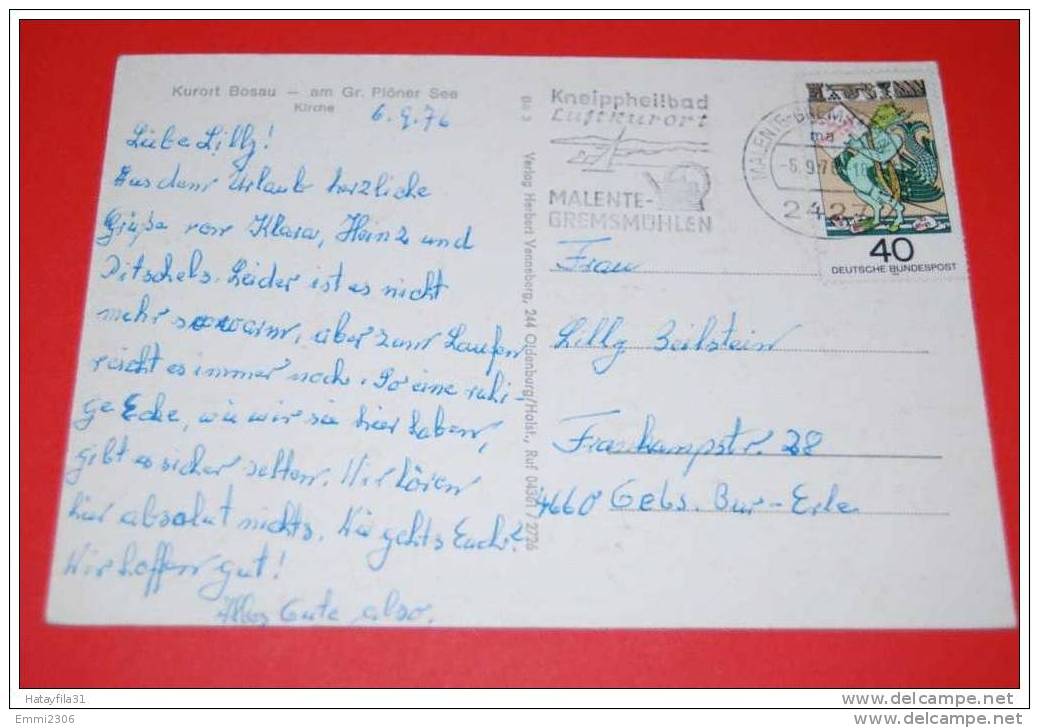 Kurort Bosau – am Gr. Plöner See
Kirche
6.9.76
Liebe Lilly!
Aus dem Urlaub herzliche
Grüße von Klara, Heinz und
Ditschels. Leider ist es nicht
mehr so warm, aber zum Laufen
reicht es immer noch. So eine ruhi-
ge Ecke, wie wir sie hier haben,
gibt es sicher selten. Wir hören
hier absolut nichts. Wie gehts Euch?
Wir hoffen gut!
Alles Gute also.
Bo 3 Verlag Herbert Venneberg, 244 Oldenburg/Holst., Ruf 04361 / 2726
Kneippheilbad
Luftkurort
MALENTE-
GREMSMÜHLEN
MALENTE-GREMS
ma
-6.9.76
2427
40
DEUTSCHE BUNDESPOST
Frau
Lilly Beilstein
Frankampstr. 28
4660 Gels. Bur-Erle
Hatayfila31
Emmi2306
www.delcampe.net
www.delcampe.net